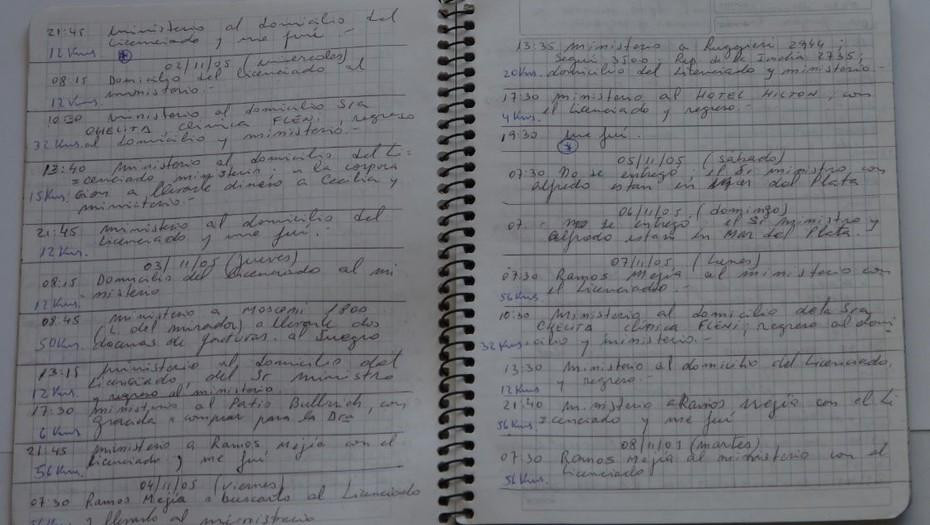 21:45 ministerio al domicilio del
12 Kms. Licenciado y me fuí.-
02/11/05 (miercoles)
08:15 Domicilio del Licenciado al
12 Kms. ministerio.-
10:30 ministerio al domicilio Sra
CHELITA, clinica FLENI, regreso
32 Kms. al domicilio y ministerio.-
13:40 Ministerio al domicilio del Li=
=cenciado ministerio; a la corpora
15 Kms. cion a llevarle dinero a Cecilia y
ministerio.-
21:45 ministerio al domicilio del
12 Kms. Licenciado y me fuí.-
03/11/05 (jueves)
08:15 Domicilio del Licenciado al mi
12 Kms. =nisterio
08:45 ministerio a MOSCONI 1800
(L. del mirador) a llevarle dos
50 Kms. docenas de facturas al suegro
13:15 ministerio al domicilio del
Licenciado, del Sr ministro
12 Kms. y regreso al ministerio
17:30 ministerio al Patio Bullrich, con
6 Kms. a comprar para la Dra
21:45 ministerio a Ramos Mejía con el
56 Kms. Licenciado y me fuí
04/11/05 (viernes)
07:30 Ramos Mejía a buscarlo al Licenciado
56 Kms. y llevarlo al ministerio
13:35 ministerio a Ruggieri 2944;
Seguí 3500; Rep. de la India 2735;
20 Kms. domicilio del Licenciado y ministerio.-
17:30 ministerio al HOTEL HILTON, con
4 Kms. el Licenciado y regreso.-
19:30 me fuí.
05/11/05 (sabado)
07:30 No se entregó; el Sr ministro con
Alfredo estan en Mar del Plata
06/11/05 (domingo)
07 - No se entregó el Sr ministro y
Alfredo estan en Mar del Plata.
07/11/05 (lunes)
07:30 Ramos Mejía al ministerio con
56 Kms. el Licenciado.-
10:30 Ministerio al domicilio de la Sra
CHELITA, clinica FLENI; regreso al domi
32 Kms. =cilio y ministerio.-
13:30 Ministerio al domicilio del Licenciado,
12 Kms. y regreso.
21:40 Ministerio a Ramos Mejía con el Li
56 Kms. =cenciado y me fuí
08/11/05 (martes)
07:30 Ramos Mejía al ministerio con el
56 Kms. Licenciado